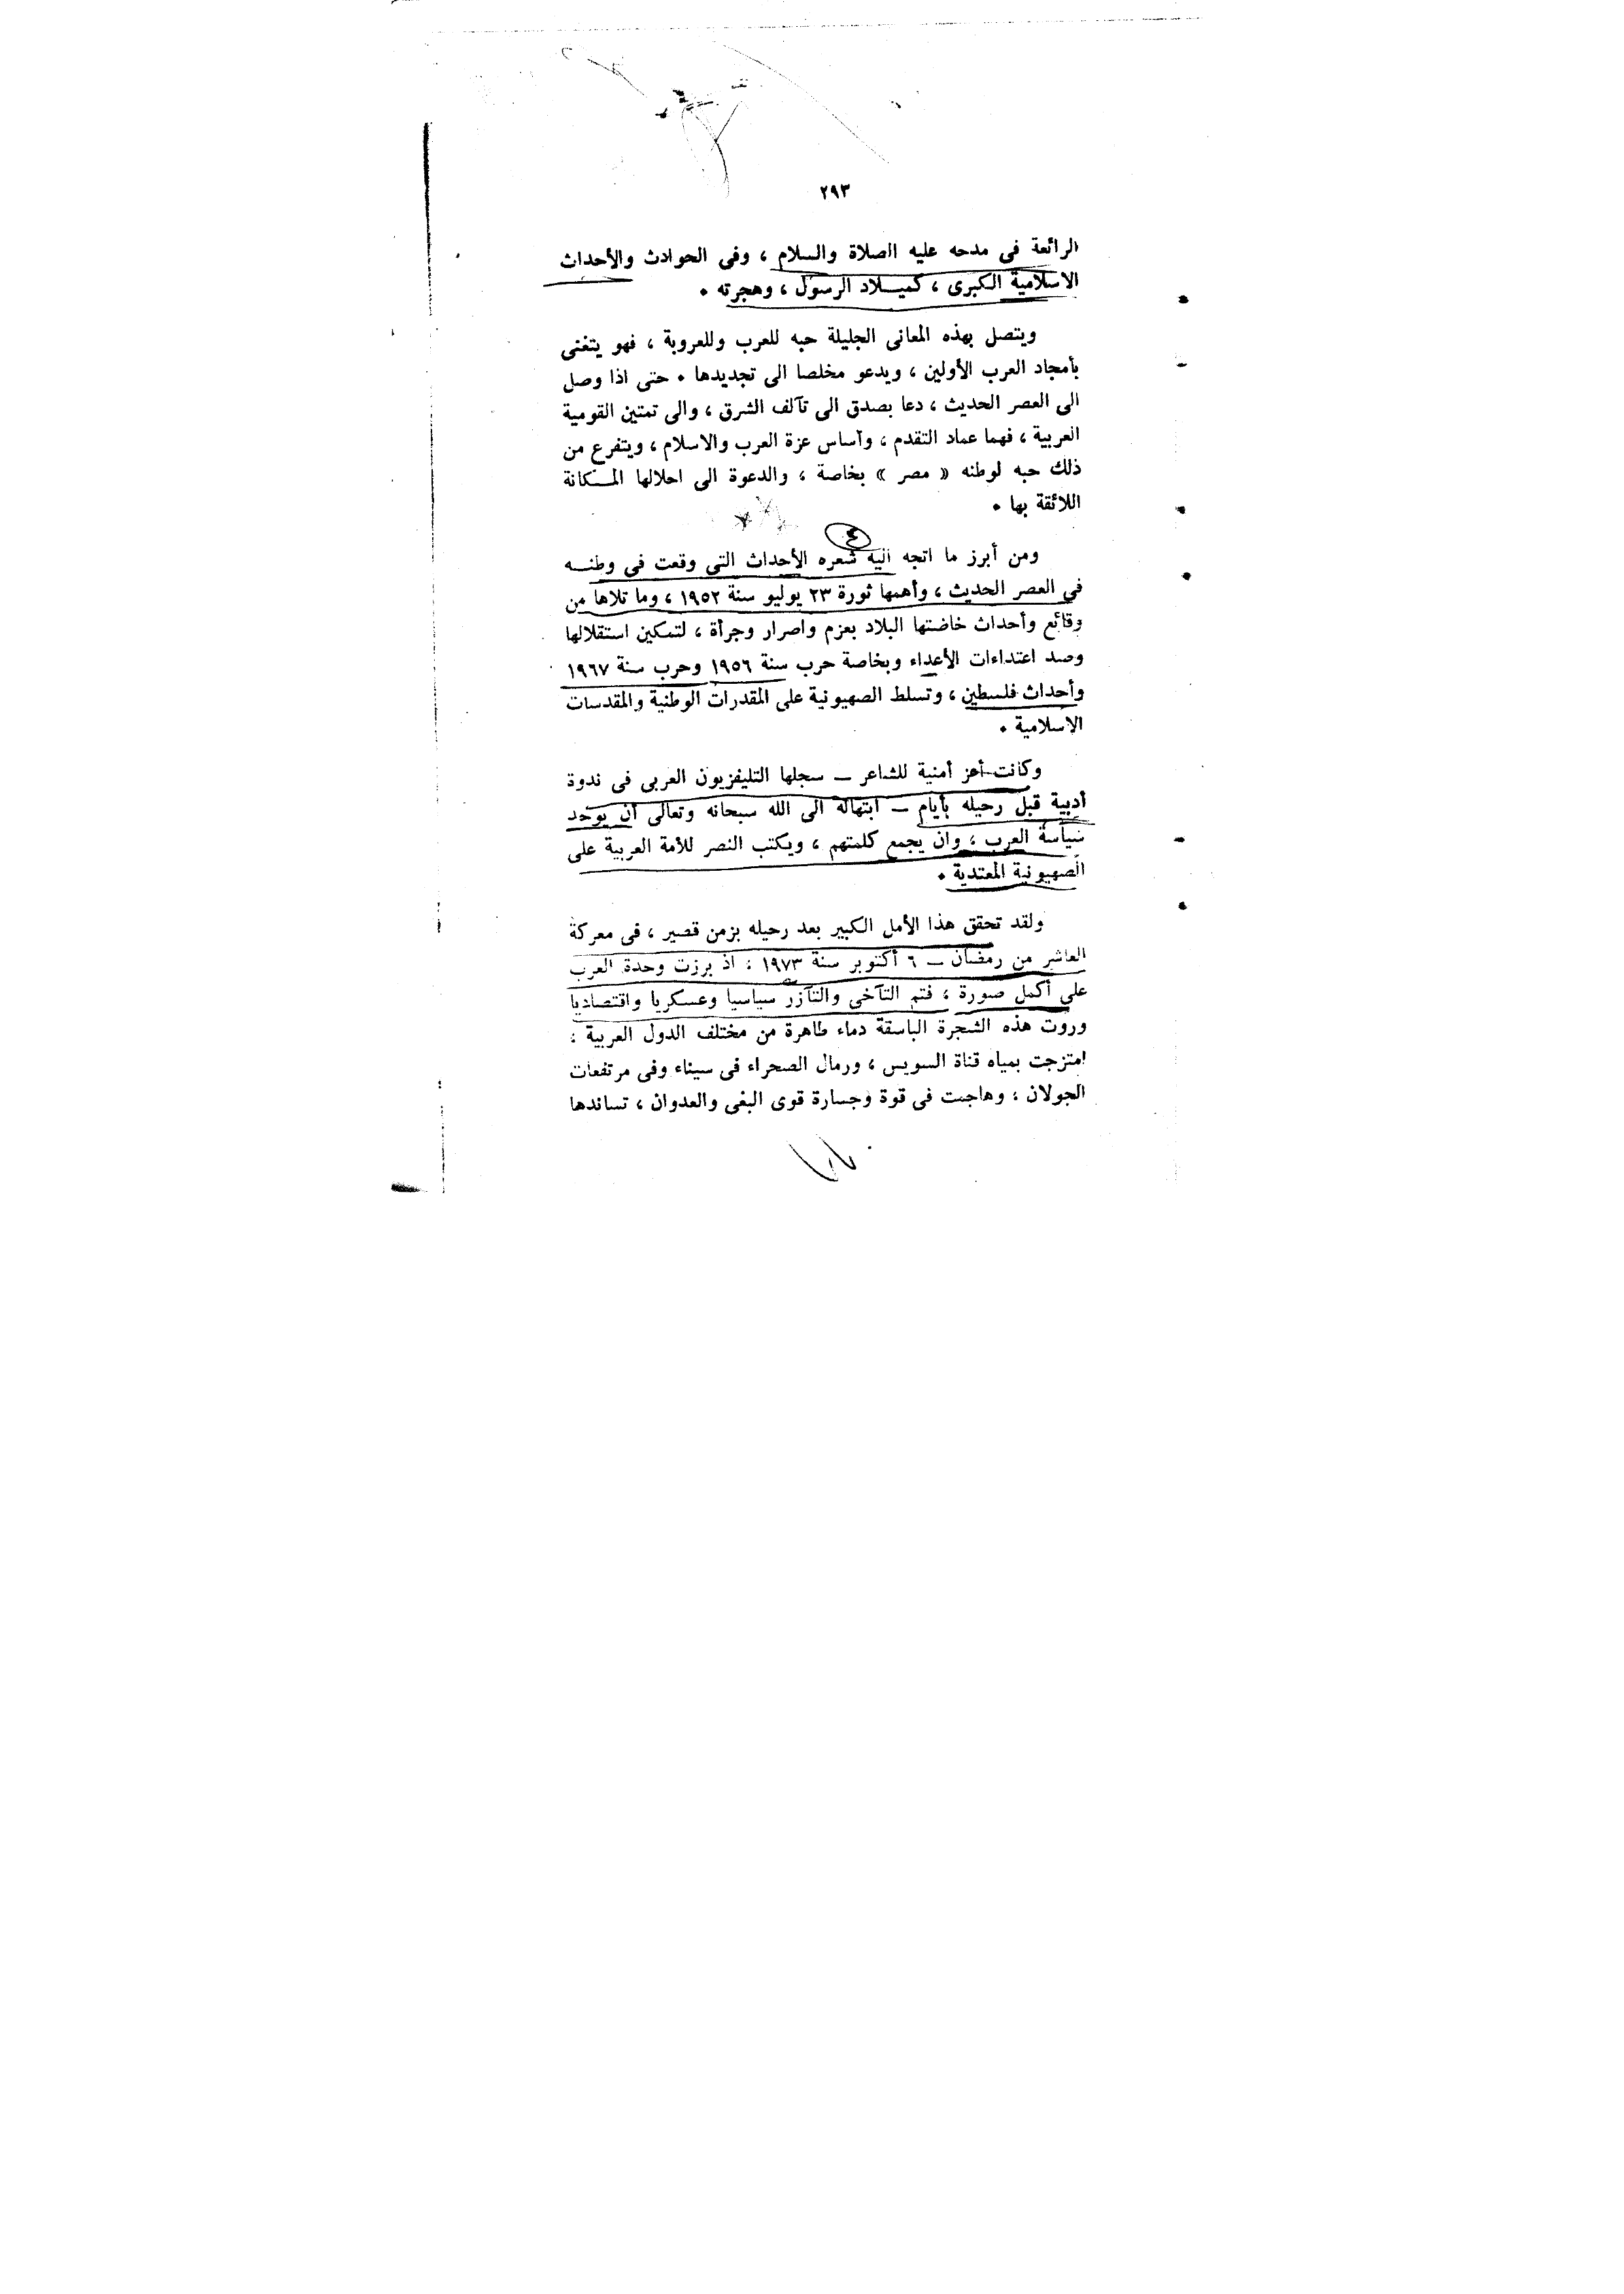 ٢٩٣
الرائعة فى مدحه عليه الصلاة والسلام ، وفى الحوادث والأحداث
الاسلامية الكبرى ، كميـــلاد الرسول ، وهجرته .
ويتصل بهذه المعانى الجليلة حبه للعرب وللعروبة ، فهو يتغنى
بأمجاد العرب الأولين ، ويدعو مخلصا الى تجديدها . حتى اذا وصل
الى العصر الحديث ، دعا بصدق الى تآلف الشرق ، والى تمتين القومية
العربية ، فهما عماد التقدم ، وأساس عزة العرب والاسلام ، ويتفرع من
ذلك حبه لوطنه « مصر » بخاصة ، والدعوة الى احلالها المـــكانة
اللائقة بها .
٤
ومن أبرز ما اتجه اليه شعره الأحداث التى وقعت فى وطنـــه
فى العصر الحديث ، وأهمها ثورة ٢٣ يوليو سنة ١٩٥٢ ، وما تلاها من
وقائع وأحداث خاضتها البلاد بعزم واصرار وجرأة ، لتمكين استقلالها
وصد اعتداءات الأعداء وبخاصة حرب سنة ١٩٥٦ وحرب سنة ١٩٦٧
وأحداث فلسطين ، وتسلط الصهيونية على المقدرات الوطنية والمقدسات
الاسلامية .
وكانت أعز أمنية للشاعر ــ سجلها التليفزيون العربى فى ندوة
أدبية قبل رحيله بأيام ــ ابتهاله الى الله سبحانه وتعالى أن يوحد
سياسة العرب ، وأن يجمع كلمتهم ، ويكتب النصر للأمة العربية على
الصهيونية المعتدية .
ولقد تحقق هذا الأمل الكبير بعد رحيله بزمن قصير ، فى معركة
العاشر من رمضان ــ ٦ أكتوبر سنة ١٩٧٣ ، اذ برزت وحدة العرب
على أكمل صورة ، فتم التآخى والتآزر سياسيا وعسكريا واقتصاديا
وروت هذه الشجرة الباسقة دماء طاهرة من مختلف الدول العربية ،
امتزجت بمياه قناة السويس ، ورمال الصحراء فى سيناء وفى مرتفعات
الجولان ، وهاجمت فى قوة وجسارة قوى البغى والعدوان ، تساندها